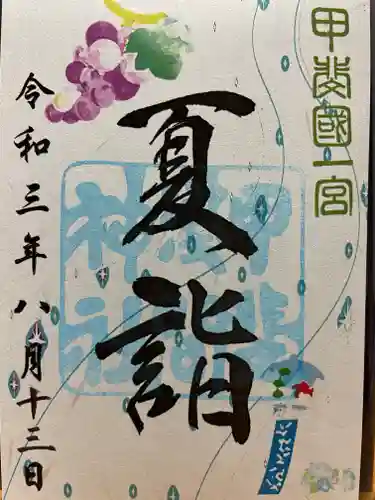 甲斐國一宮
夏詣
令和三年八月十三日
浅間神社